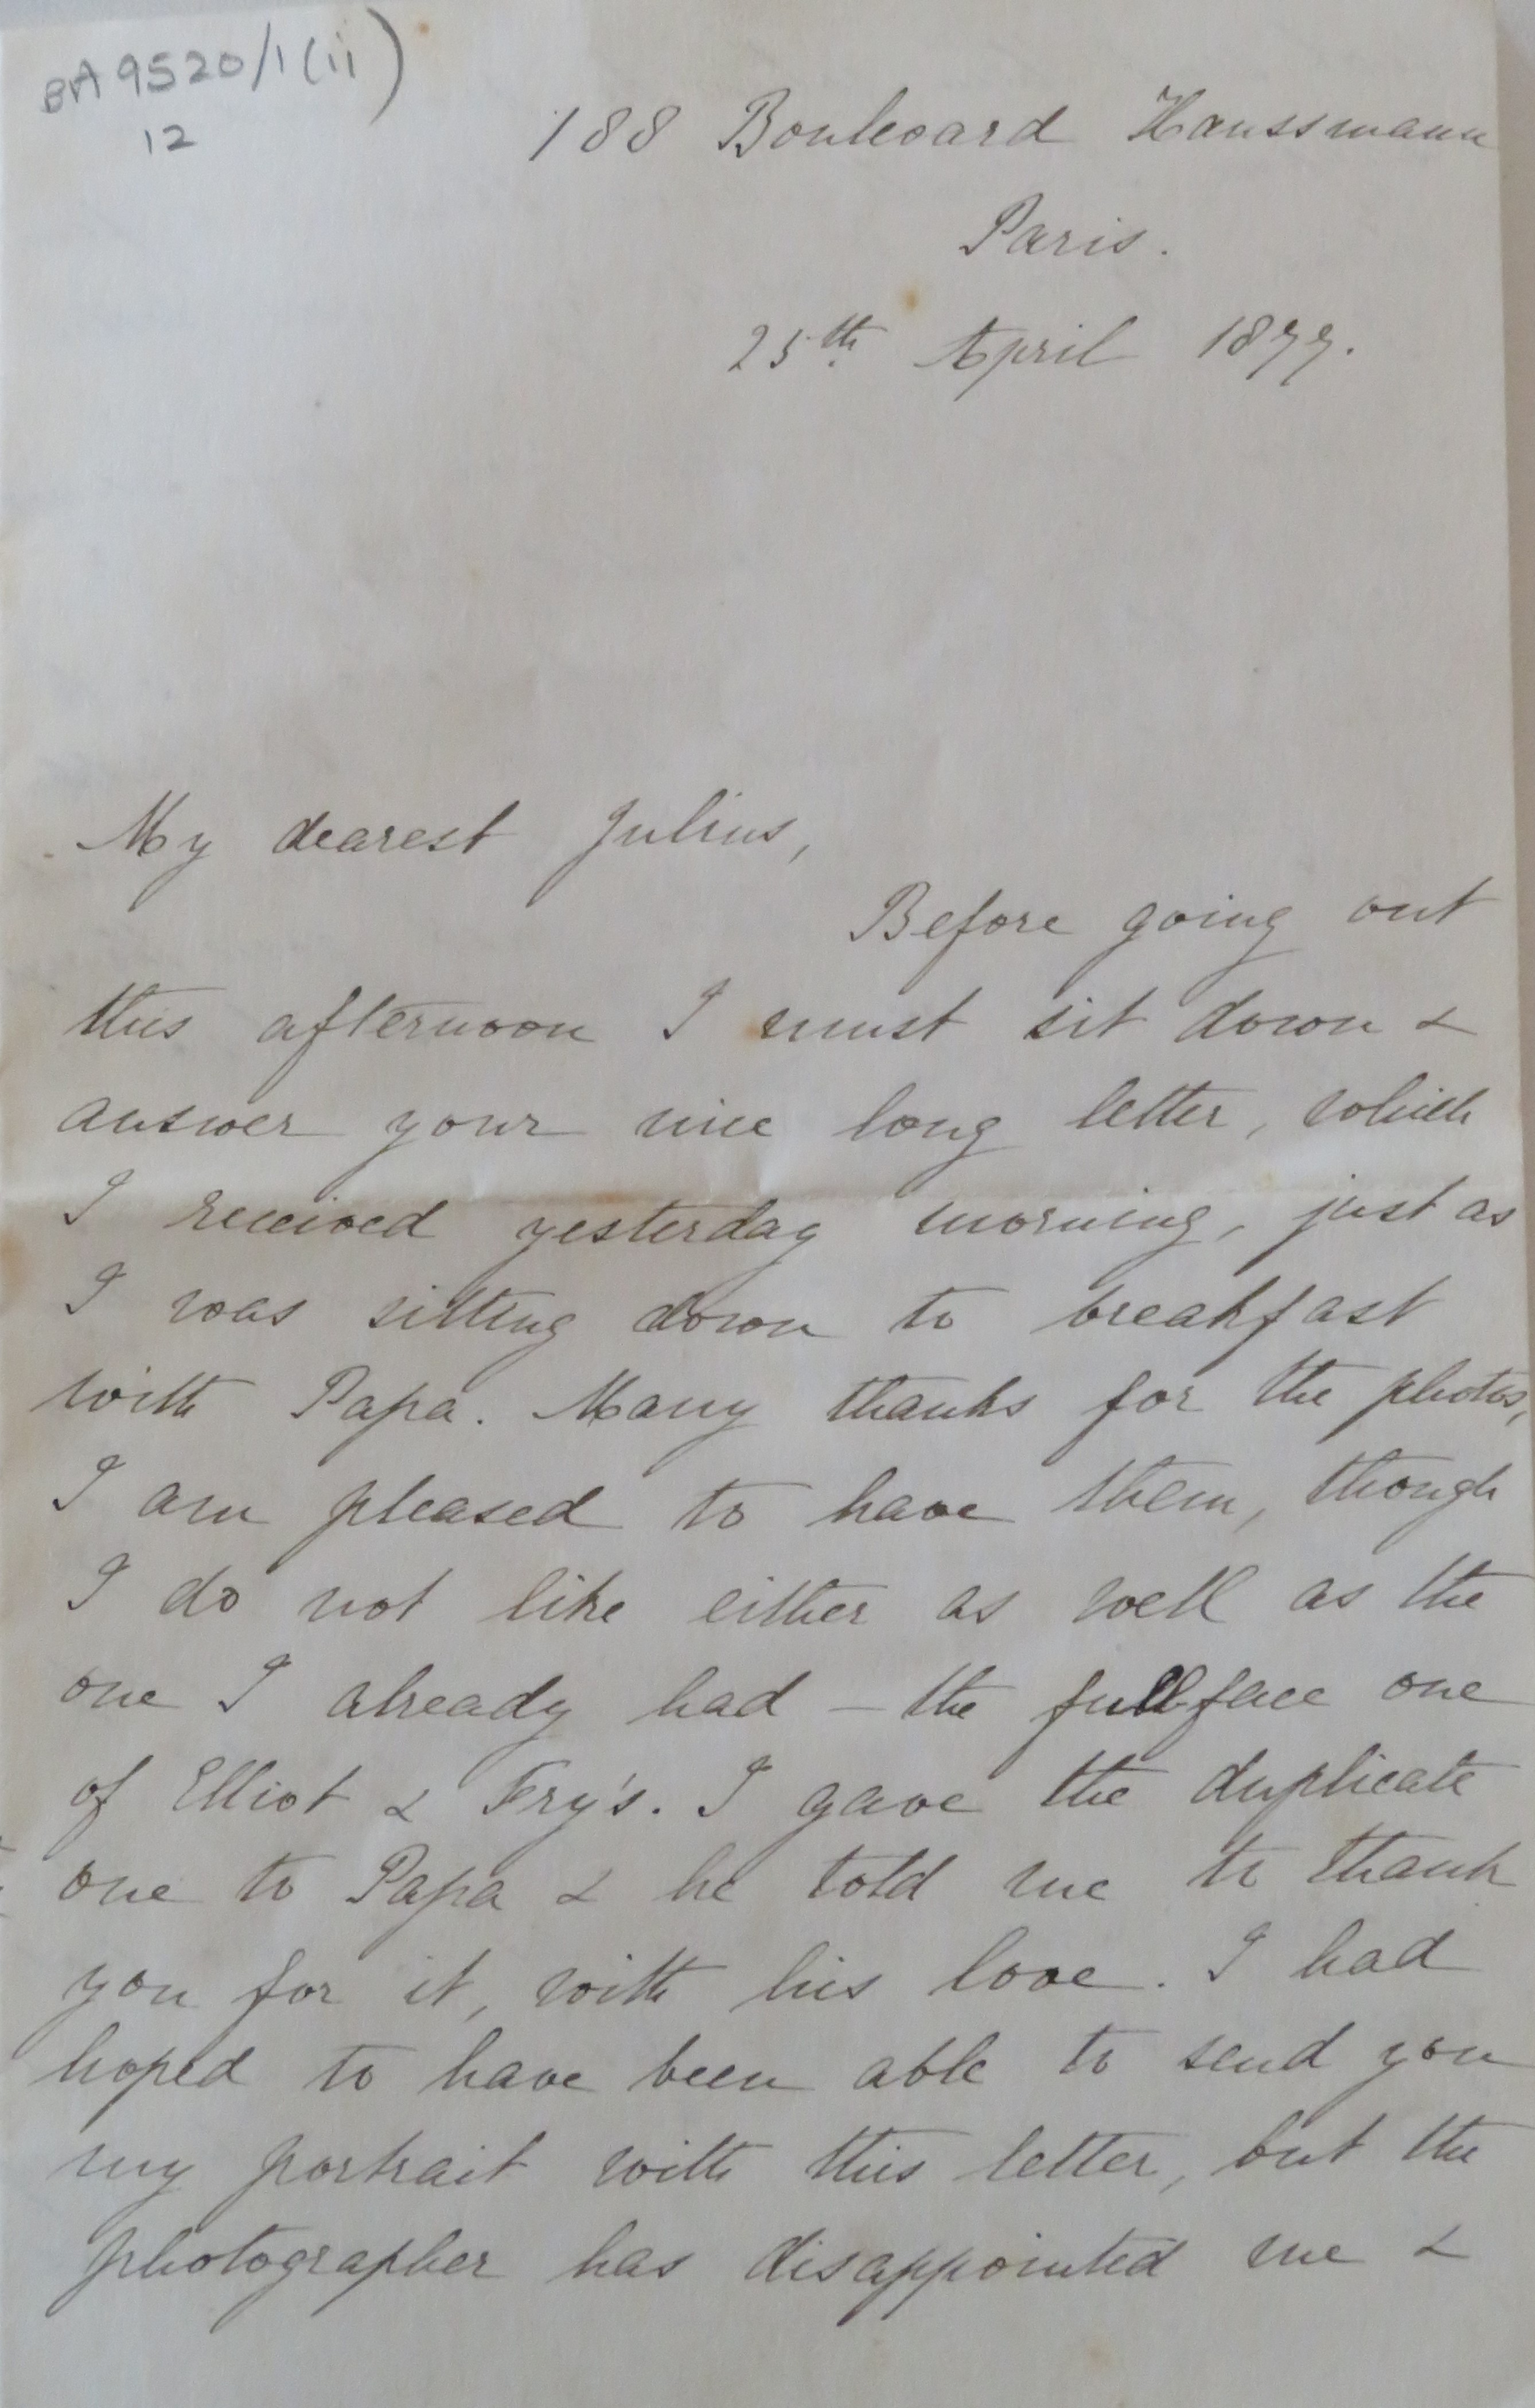 BA 9520/1(ii)
12
188 Boulevard Haussmann
Paris.
25th April 1877.
My dearest Julius,
Before going out
this afternoon I must sit down &
answer your nice long letter, which
I received yesterday morning, just as
I was sitting down to breakfast
with Papa. Many thanks for the photos,
I am pleased to have them, though
I do not like either as well as the
one I already had – the full face one
of Elliot & Fry's. I gave the duplicate
one to Papa & he told me to thank
you for it, with his love. I had
hoped to have been able to send you
my portrait with this letter, but the
photographer has disappointed me &